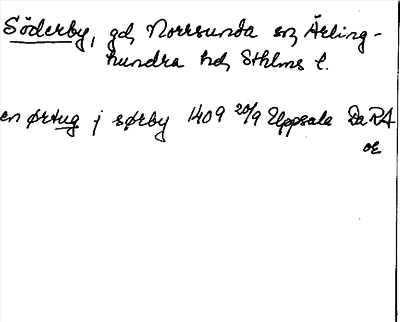 Söderby, gd, Norrsunda sn, Ärling-
hundra hd, Sthlms l.
en ørtug j sørby 1409 20/9 Uppsala Da RA
oe